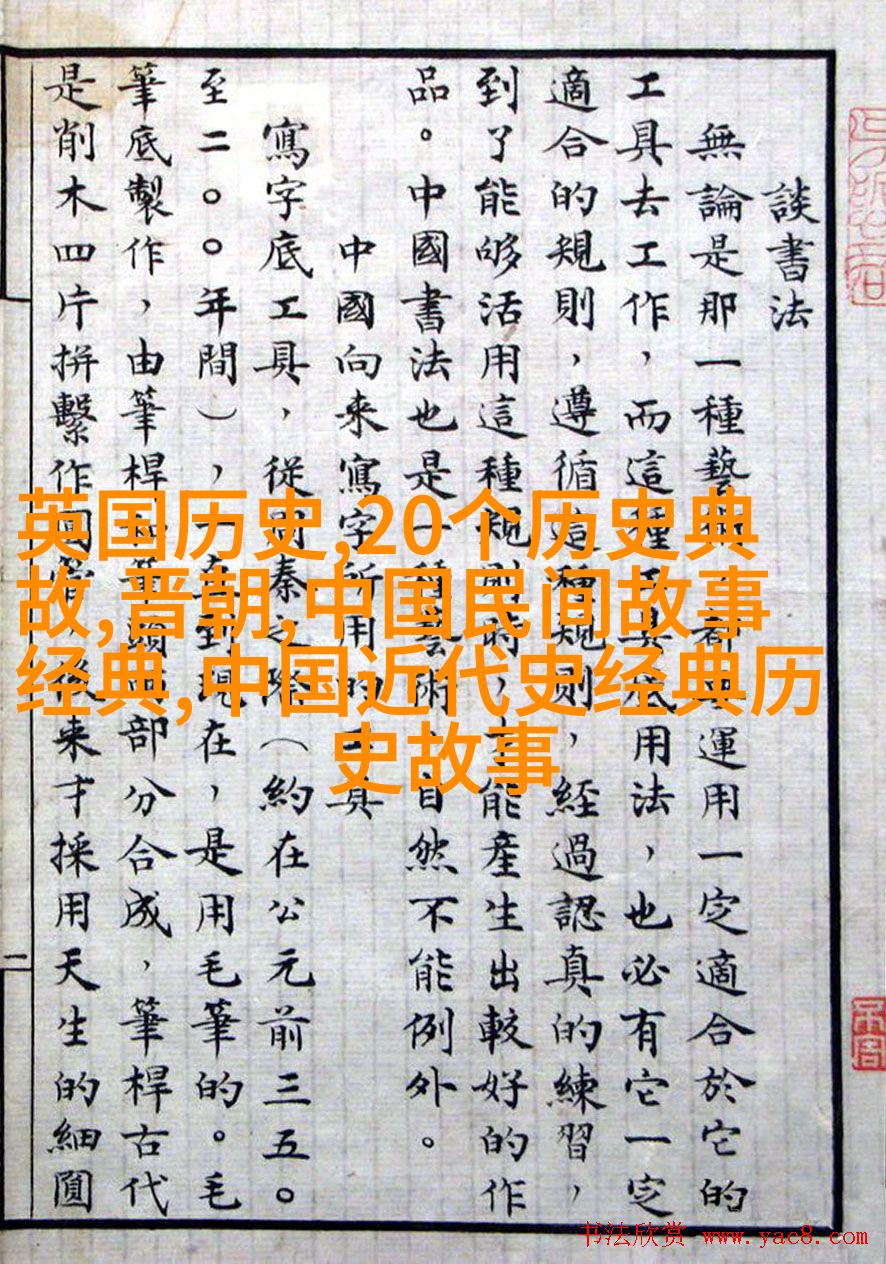 談書法
無論是那一種藝術，都要運用一定適合於它的
工具去工作，而這種工具底用法，也必有它一定
適合的規則，遵循這種規則，經過認真的練習，
到了能够活用這種規則時，才能產生出較好的作
品。中國書法也是一種藝術，自然不能例外。
中國向来寫字所用的工具
寫字底工具，從周秦之際（約在公元前三五〇
至二〇〇年間），一直到現在，是用毛筆的。毛
筆底製作，由筆桿和筆頭部分合成，筆桿古代
是削木四片拼繫作圓管，後来才採用天生的細圓
二
英国历史,20个历史典
故,晋朝,中国民间故事
经典,中国近代史经典历
史故事
书法欣赏 www.yac8.com